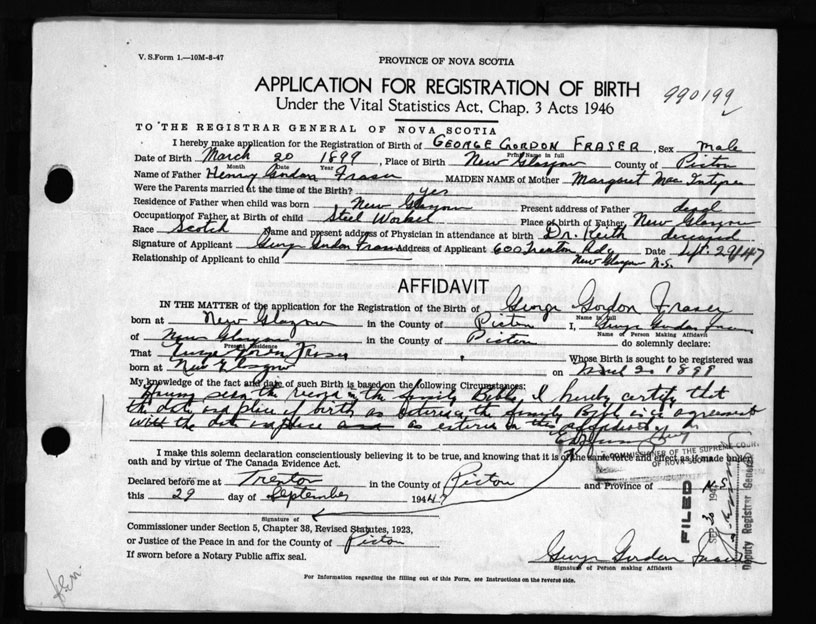 V. S. Form 1.—10M-8-47
PROVINCE OF NOVA SCOTIA
APPLICATION FOR REGISTRATION OF BIRTH
990199
Under the Vital Statistics Act, Chap. 3 Acts 1946
TO THE REGISTRAR GENERAL OF NOVA SCOTIA
I hereby make application for the Registration of Birth of GEORGE GORDON FRASER, Sex male
Print Name in full
Date of Birth March 20 1899, Place of Birth New Glasgow County of Pictou
Month Date Year
Name of Father Henry Gordon Fraser MAIDEN NAME of Mother Margaret MacIntyre
Were the Parents married at the time of the Birth? yes
Residence of Father when child was born New Glasgow Present address of Father dead
Occupation of Father at Birth of child Steel Worker Place of birth of Father, New Glasgow
Race Scotch Name and present address of Physician in attendance at birth Dr. Keith deceased
Signature of Applicant George Gordon Fraser Address of Applicant 600 Trenton Rd Date Sept. 29/47
Relationship of Applicant to child New Glasgow N.S.
AFFIDAVIT
IN THE MATTER of the application for the Registration of the Birth of George Gordon Fraser
Name in full
born at New Glasgow in the County of Pictou I, George Gordon Fraser
Name of Person Making Affidavit
of New Glasgow in the County of Pictou do solemnly declare:
Present Residence
That George Gordon Fraser Whose Birth is sought to be registered was
born at New Glasgow on March 20 1899
My knowledge of the fact and date of such Birth is based on the following Circumstances:
Having seen the record in the family Bible, I hereby certify that
the date and place of birth as entered in the family Bible is in agreement
with the date and place as entered in this affidavit
I make this solemn declaration conscientiously believing it to be true, and knowing that it is of the same force and effect as if made under
oath and by virtue of The Canada Evidence Act.
A COMMISSIONER OF THE SUPREME COURT
OF NOVA SCOTIA
Declared before me at Trenton in the County of Pictou and Province of N.S.
this 29 day of September 1947
Signature of
Commissioner under Section 5, Chapter 38, Revised Statutes, 1923,
or Justice of the Peace in and for the County of Pictou
If sworn before a Notary Public affix seal.
George Gordon Fraser
Signature of Person making Affidavit
For Information regarding the filling out of this Form, see Instructions on the reverse side.
FILED
SEP 30 194
Deputy Registrar General